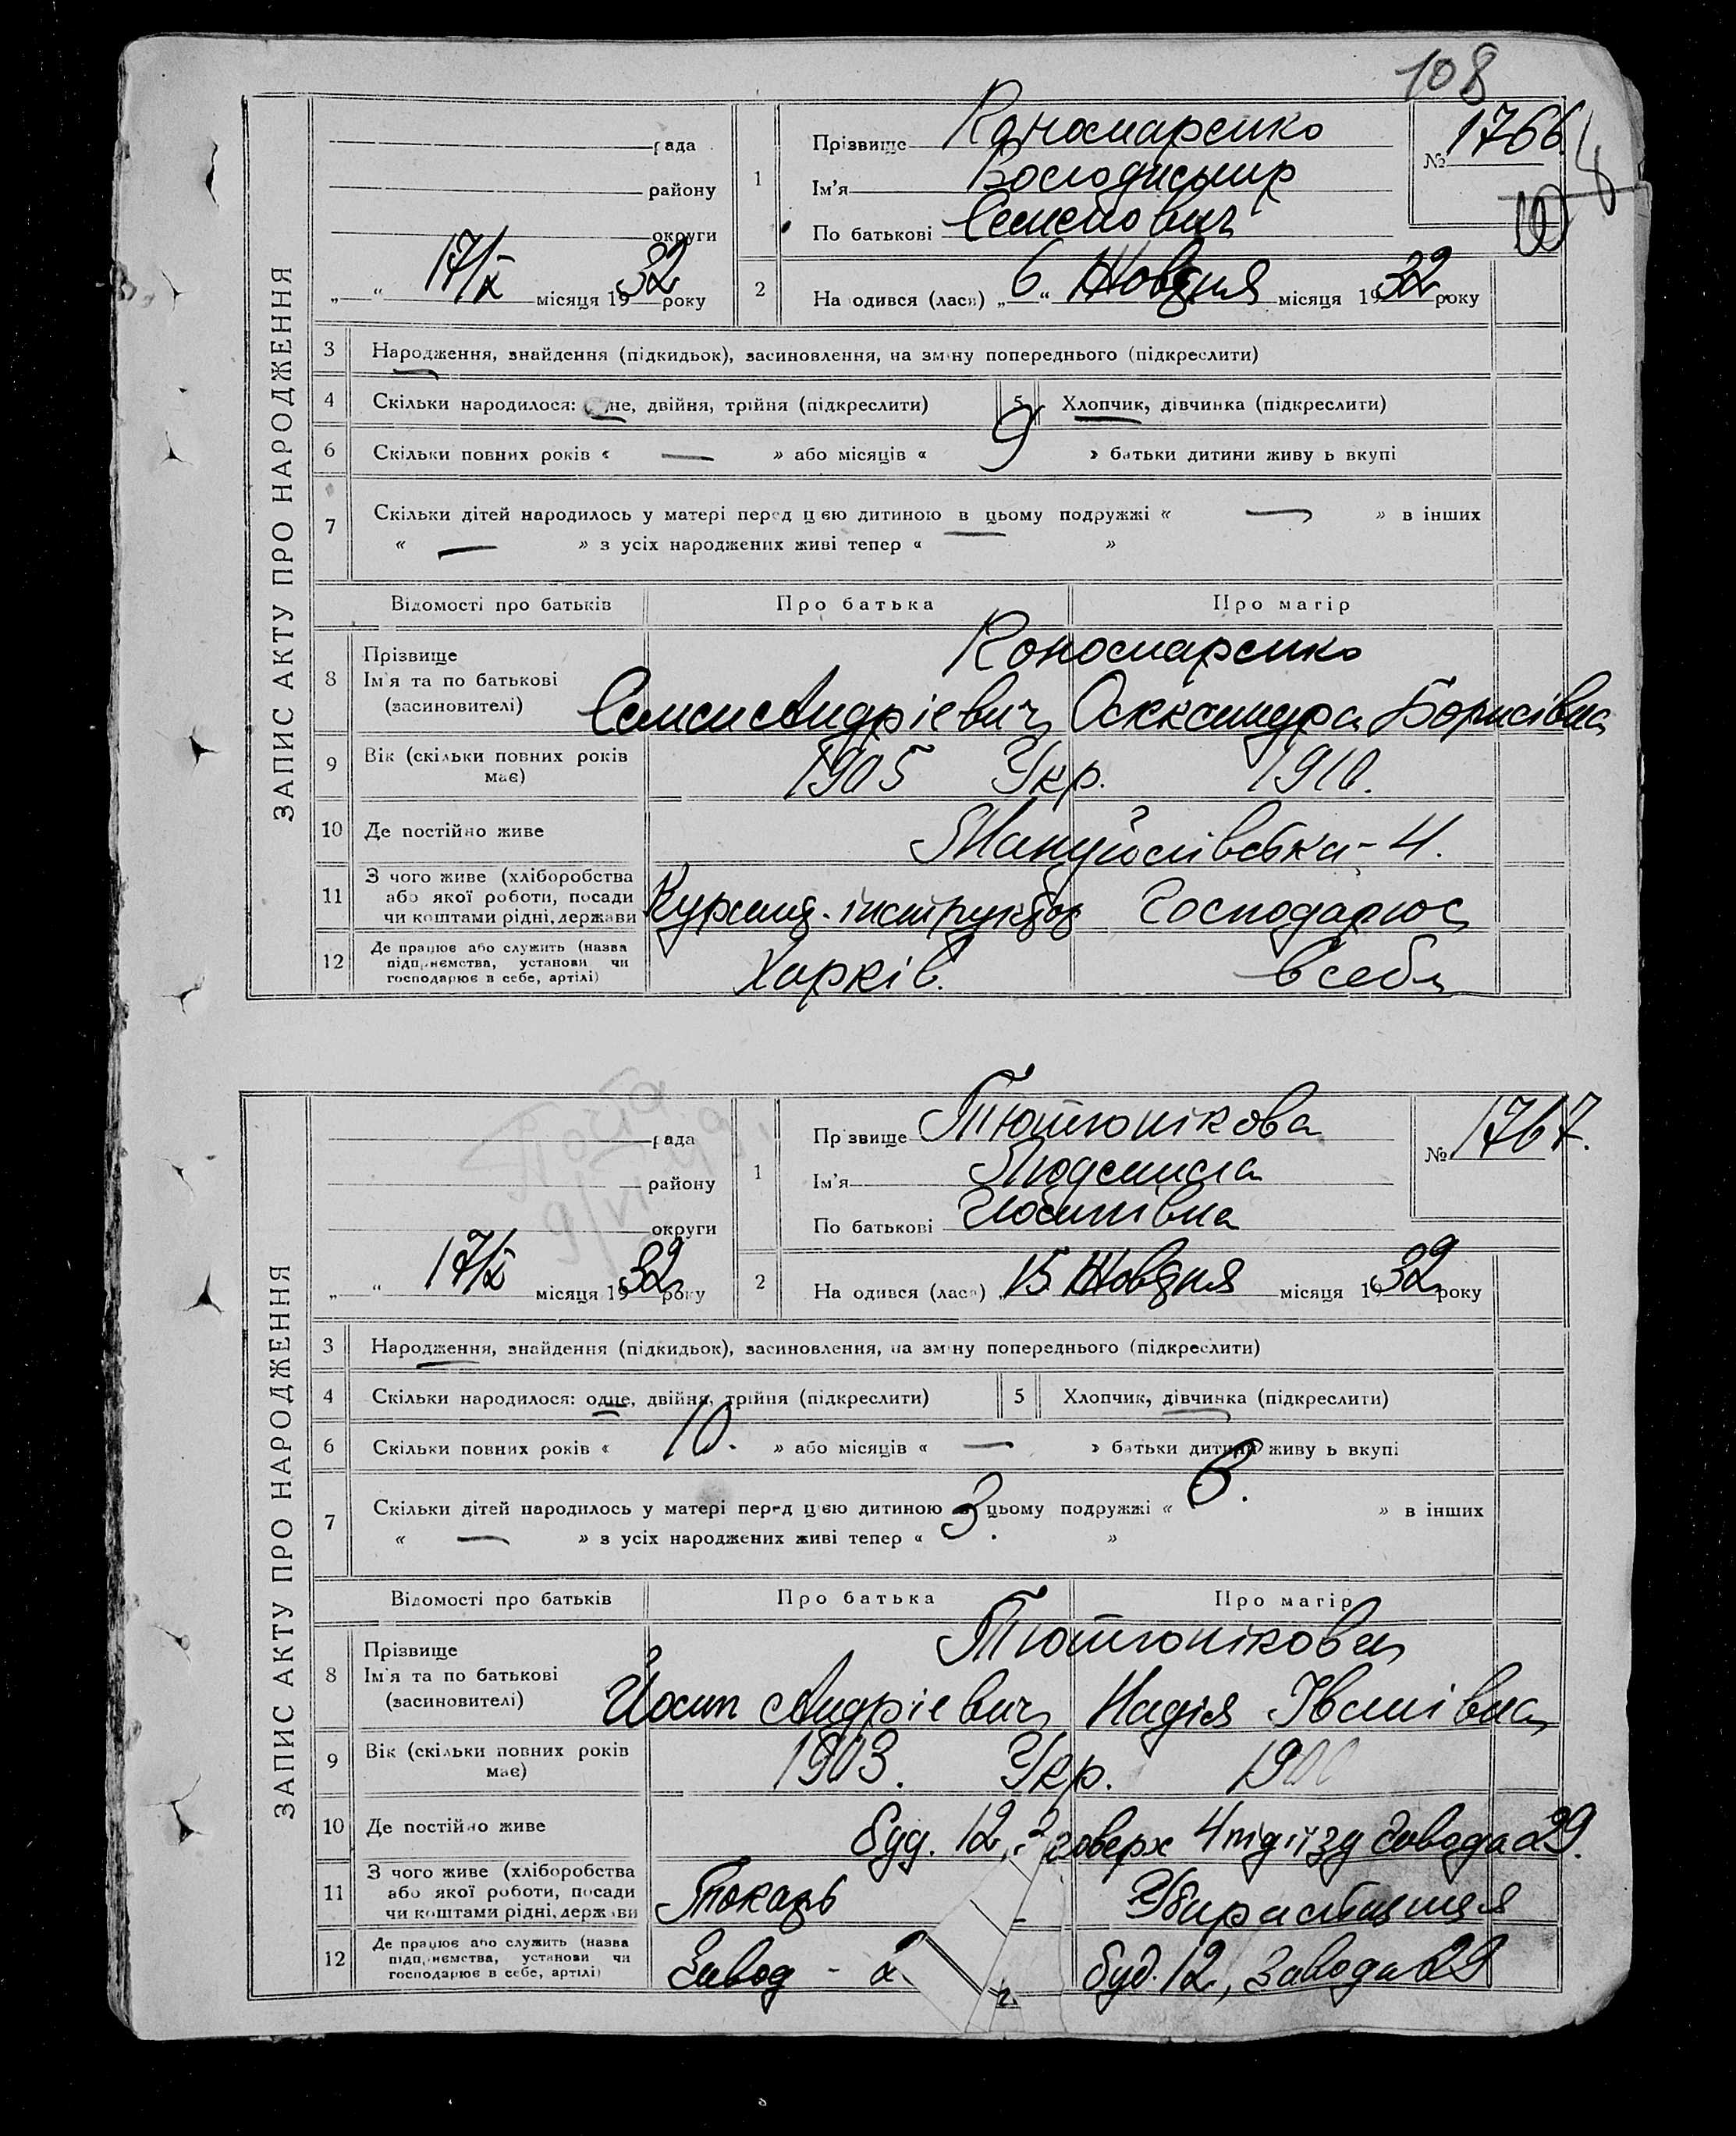 108
ЗАПИС АКТУ ПРО НАРОДЖЕННЯ
рада
району
округи
17/X місяця 1932 року
1
Прізвище Кономаренко
Ім'я Володимир
По батькові Семенович
№ 1766.
2
На одився (лася) „6“ Жовтня місяця 1932 року
3 Народження, знайдення (підкидьок), засиновлення, на зміну попереднього (підкреслити)
4 Скільки народилося: не, двійня, трійня (підкреслити)
5 Хлопчик, дівчинка (підкреслити)
6 Скільки повних років « — » або місяців « 9 » батьки дитини живу ь вкупі
7 Скільки дітей народилось у матері перед цією дитиною в цьому подружжі « — » в інших
« — » з усіх народжених живі тепер « »
Відомості про батьків Про батька Про матір
8 Прізвище
Ім'я та по батькові
(засиновителі)
Кономаренко
Семен Андрієвич Олександра Борисівна
9 Вік (скільки повних років має) 1905 Укр. 1910.
10 Де постійно живе Мануйлівська - 4.
11 З чого живе (хліборобства
або якої роботи, посади
чи коштами рідні, держави
інструктор Господарює
12 Де працює або служить (назва
підприємства, установи чи
господарює в себе, артілі)
Харків. в себе
ЗАПИС АКТУ ПРО НАРОДЖЕННЯ
рада
району
округи
17/X місяця 1932 року
1
Пр звище Тютюнікова
Ім'я Людмила
По батькові Йосипівна
№ 1767.
2
На одився (лася) „15 Жовтня місяця 1932 року
3 Народження, знайдення (підкидьок), засиновлення, на зміну попереднього (підкреслити)
4 Скільки народилося: одне, двійня, трійня (підкреслити)
5 Хлопчик, дівчинка (підкреслити)
6 Скільки повних років « 10. » або місяців « — » батьки дитини живу ь вкупі
7 Скільки дітей народилось у матері перед цією дитиною цьому подружжі « » в інших
« — » з усіх народжених живі тепер « 3. »
Відомості про батьків Про батька Про матір
8 Прізвище
Ім'я та по батькові
(засиновителі)
Тютюнікови
Йосип Андрієвич Надія Іванівна
9 Вік (скільки повних років має) 1903. Укр. 1900
10 Де постійно живе буд. 12, поверх 4 підїзд завода 29.
11 З чого живе (хліборобства
або якої роботи, посади
чи коштами рідні, держави
Токарь
12 Де працює або служить (назва
підприємства, установи чи
господарює в себе, артілі)
Завод - 2 буд. 12, завода 29